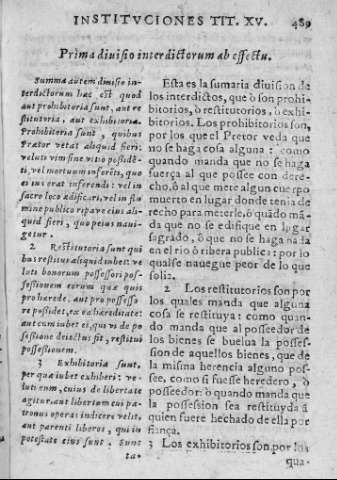 INSTITVCIONES TIT. XV. 489
Prima diuisio interdictorum ab effectu.
Summa autem diuisio in-
terdictorum hæc est quod
aut prohibitoria sunt, aut re
stitutoria, aut exhibitoria.
Prohibitoria sunt, quibus
Prætor vetat aliquid fieri:
veluti vim sine vitio possidē-
ti, vel mortuum inferēti, quo
ei ius erat inferendi: vel in
sacro loco ædificari, vel in flu
mine publico ripave eius ali-
quid fieri, quo peius naui-
getur.
2 Restitutoria sunt qui
bus restitui aliquid iubet: ve
luti bonorum possessori pos-
sessionem eorum quæ quis
pro hærede, aut pro possesso
re possidet, ex ea hæreditate:
aut cum iubet ei, qui vi de po
ssessione deiectus sit, restitui
possessionem.
3 Exhibitoria sunt,
per quæ iubet exhiberi: ve
luti eum, cuius de libertate
agitur: aut libertum cui pa-
tronus operas indicere velit,
aut parenti liberos, qui in
potestate eius sunt. Sunt
ta-
Esta es la sumaria diuision de
los interdictos, que ò son prohi-
bitorios, ò restitutorios, ò exhi-
bitorios. Los prohibitorios son,
por los que el Pretor veda que
no se haga cosa alguna: como
quando manda que no se haga
fuerça al que possee con dere-
cho, ò al que mete algun cuerpo
muerto en lugar donde tenia de
recho para meterle, ò quādo mā-
da que no se edifique en lugar
sagrado, ò que no se haga nada
en el rio ò ribera publica: por lo
qual se nauegue peor de lo que
solia.
2 Los restitutorios son por
los quales manda que alguna
cosa se restituya: como quan-
do manda que al posseedor de
los bienes se buelua la posses-
sion de aquellos bienes, que de
la misma herencia alguno pos-
see, como si fuesse heredero, ò
posseedor: ò quando manda que
la possession sea restituyda à
quien fuere hechado de ella por
fuerça.
3 Los exhibitorios son, por los
qua-